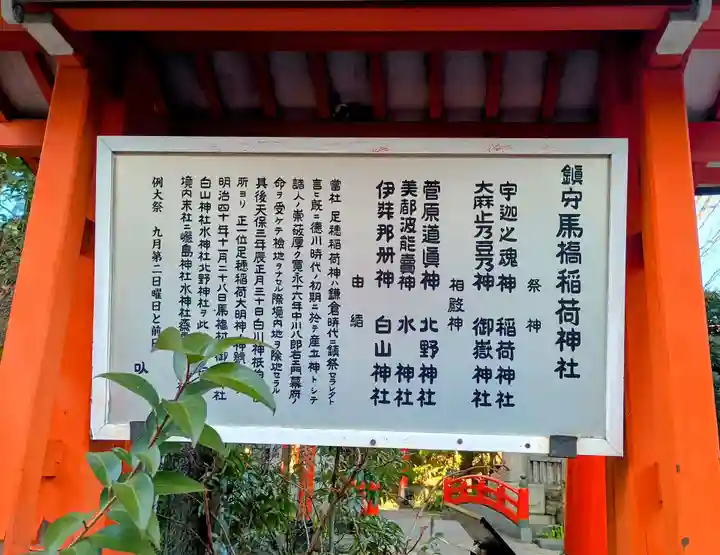 鎮守馬橋稲荷神社
祭神
宇迦之魂神 稲荷神社
大麻止乃豆乃神 御嶽神社
相殿神
菅原道眞神 北野神社
美都波能賣神 水神社
伊弉那册神 白山神社
由緒
當社 足穂稲荷神ハ鎌倉時代ニ鎮祭セラレタト
言ヒ既ニ德川時代ノ初期ニ於テ産土神トシテ
諸人ノ崇敬厚ク寛永十六年中川八郎右王門幕府ノ
命ヲ受ケテ檢地ヲナセル際境内地ヲ除地セラル
其後天保三年辰正月三十日白川神祇
所ヨリ正一位足穂稲荷大明神ノ神號
明治四十年十一月二十八日馬橋村御 社
白山神社水神社北野神社ヲ此
境内末社ニ嚴島神社水神社齋
例大祭 九月第二日曜日と前日
以